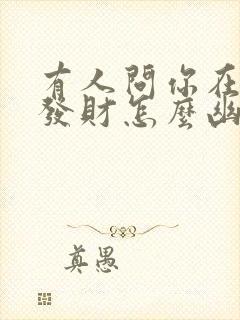 有人問你在
發財怎麼幽
真愚